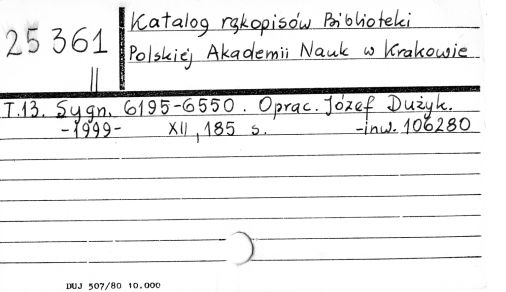 25 361
II
Katalog rękopisów Biblioteki
Polskiej Akademii Nauk w Krakowie
T.13. Sygn. 6195-6550. Oprac. Józef Dużyk.
-1999- XII, 185 s. -inw. 106280
DUJ 507/80 10.000